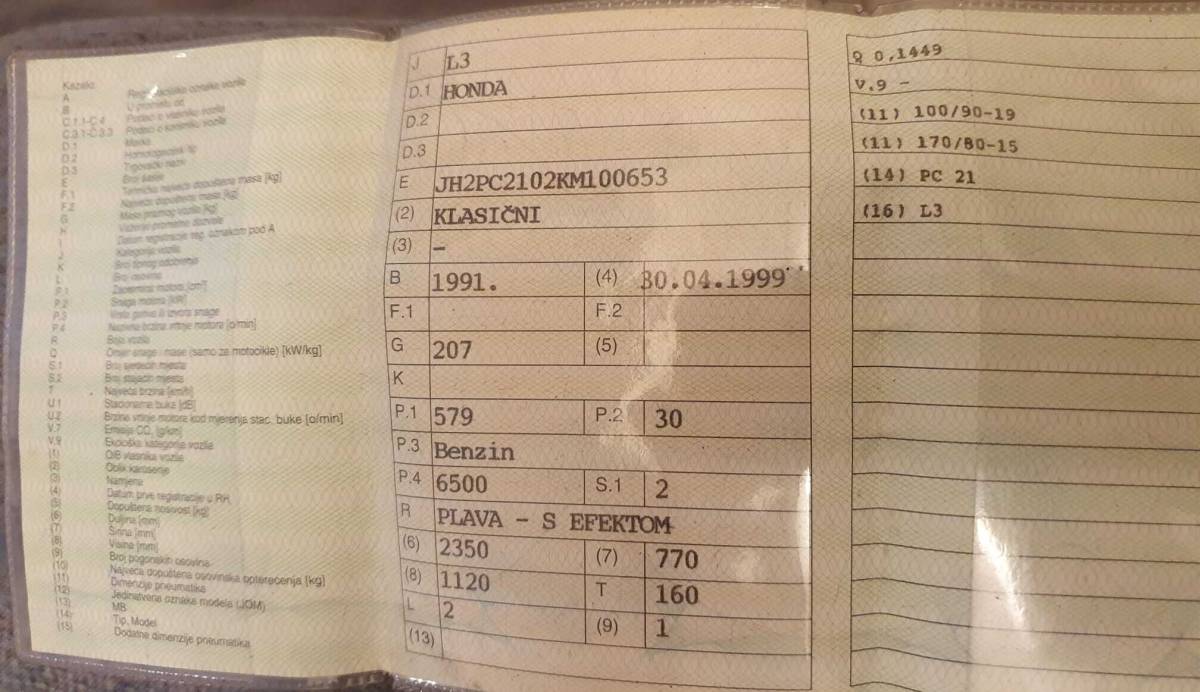 Kazalo
A Registracijska oznaka vozila
B U prometu od
C.1.1-C.4 Podaci o vlasniku vozila
C.3.1-C.3.3 Podaci o korisniku vozila
D.1 Marka
D.2 Homologacijski tip
D.3 Trgovački naziv
E Broj šasije
F.1 Tehnička najveća dopuštena masa [kg]
F.2 Najveća dopuštena masa [kg]
G Masa praznog vozila [kg]
H Važenje prometne dozvole
I Datum registracije reg. oznakom pod A
J Kategorija vozila
K Broj tipnog odobrenja
L Broj osovina
P.1 Zapremina motora [cm³]
P.2 Snaga motora [kW]
P.3 Vrsta goriva ili izvora snage
P.4 Nazivna brzina vrtnje motora [o/min]
R Boja vozila
Q Omjer snage i mase (samo za motocikle) [kW/kg]
S.1 Broj sjedećih mjesta
S.2 Broj stajaćih mjesta
T Najveća brzina [km/h]
U.1 Stacionarna buka [dB]
U.2 Brzina vrtnje motora kod mjerenja stac. buke [o/min]
V.7 Emisija CO₂ [g/km]
V.9 Ekološka kategorija vozila
(1) OIB vlasnika vozila
(2) Oblik karoserije
(3) Namjena
(4) Datum prve registracije u RH
(5) Dopuštena nosivost [kg]
(6) Duljina [mm]
(7) Širina [mm]
(8) Visina [mm]
(9) Broj pogonskih osovina
(10) Najveća dopuštena osovinska opterećenja [kg]
(11) Dimenzije pneumatika
(12) Jedinstvena oznaka modela (JOM)
(13) MB
(14) Tip, Model
(15) Dodatne dimenzije pneumatika
J L3
D.1 HONDA
D.2
D.3
E JH2PC2102KM100653
(2) KLASIČNI
(3) –
B 1991. (4) 30.04.1999
F.1 F.2
G 207 (5)
K
P.1 579 P.2 30
P.3 Benzin
P.4 6500 S.1 2
R PLAVA - S EFEKTOM
(6) 2350 (7) 770
(8) 1120 T 160
L 2 (9) 1
(13)
Q 0,1449
V.9 -
(11) 100/90-19
(11) 170/80-15
(14) PC 21
(16) L3